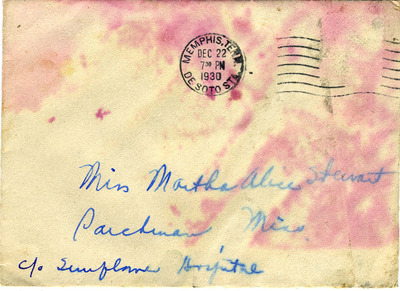 MEMPHIS, TENN.
DEC 22
7 30 PM
1930
DE SOTO STA.
Miss Martha Alice Stewart
Parchman, Miss.
c/o Sunflower Hospital